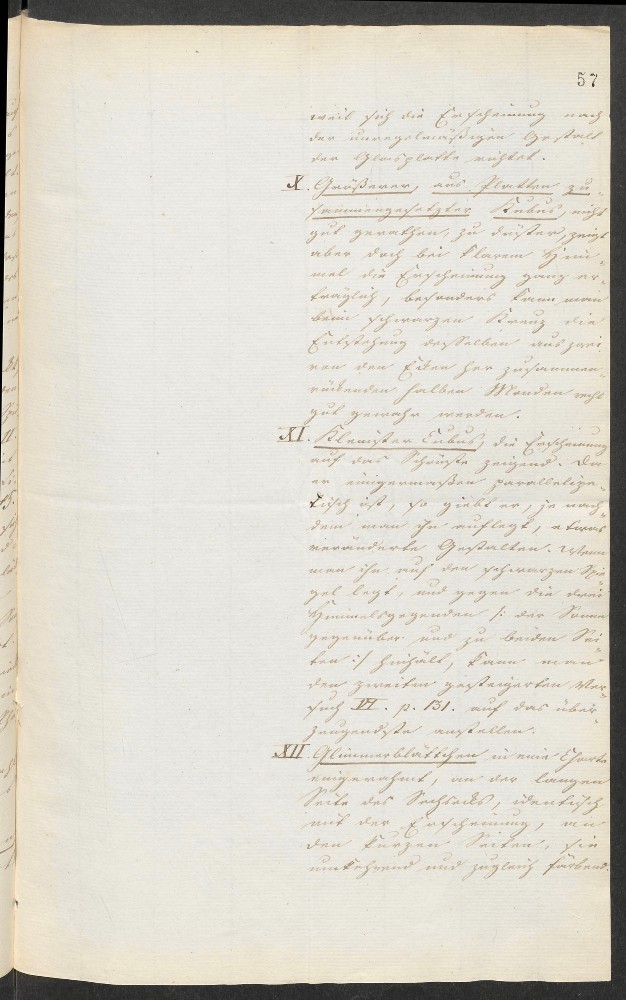 57
weil sich die Erscheinung nach
der unregelmäßigen Gestalt
der Glasplatte richtet.
X. Größerer, aus Platten zu-
sammengesetzter Kubus, nicht
gut gerathen, zu düster, zeigt
aber doch bei klarem Him-
mel die Erscheinung ganz er-
träglich, besonders kann man
beim schwarzen Kreuz die
Entstehung desselben aus zwei
von den Ecken her zusammen-
rückenden halben Monden recht
gut gewahr werden.
XI. Kleinster Cubus, die Erscheinung
auf das Schönste zeigend. Da
er einigermaßen parallelepi-
disch ist, so giebt er, je nach-
dem man ihn auflegt, etwas
veränderte Gestalten. Wenn
man ihn auf den schwarzen Spie
gel legt, und gegen die drei
Himmelsgegenden /: der Sonne
gegenüber und zu beiden Sei
ten :/ hinhält, kann man
den zweiten gesteigerten Ver
such VI. p. 131. auf das über-
zeugendste anstellen.
XII Glimmerblättchen in eine Charte
eingerahmt, an der langen
Seite des Sechsecks, identisch
mit der Erscheinung, an
den kurzen Seiten, sie
umkehrend und zugleich färbend.